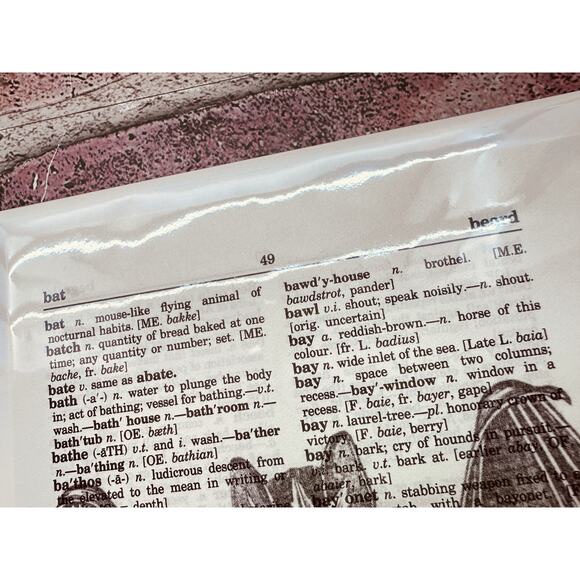 bat
49
beard
bat n. mouse-like flying animal of
nocturnal habits. [ME. bakke]
batch n. quantity of bread baked at one
time; any quantity or number; set. [ME.
bache, fr. bake]
bate v. same as abate.
bath (-a'-) n. water to plunge the body
in; act of bathing; vessel for bathing.—v.t.
wash.—bath' house n.—bath'room n.—
bath'tub n. [OE. bæth]
bathe (-āTH) v.t. and i. wash.—ba'ther
n.—ba'thing n. [OE. bathian]
ba'thos (-ā-) n. ludicrous descent from
the elevated to the mean in writing or
depth]
bawd'y-house n. brothel. [M.E.
bawdstrot, pander]
bawl v.i. shout; speak noisily.—n. shout.
[orig. uncertain]
bay a. reddish-brown.—n. horse of this
colour. [fr. L. badius]
bay n. wide inlet of the sea. [Late L. baia]
bay n. space between two columns;
recess.—bay'-window n. window in a
recess. [F. baie, fr. bayer, gape]
bay n. laurel-tree.—pl. honorary crown of
victory. [F. baie, berry]
bay n. bark; cry of hounds in pursuit.—
v.t. bark. v.t. bark at. [earlier abay, OF.
abaier, bark]
bay'onet n. stabbing weapon fixed to
with a bayonet.